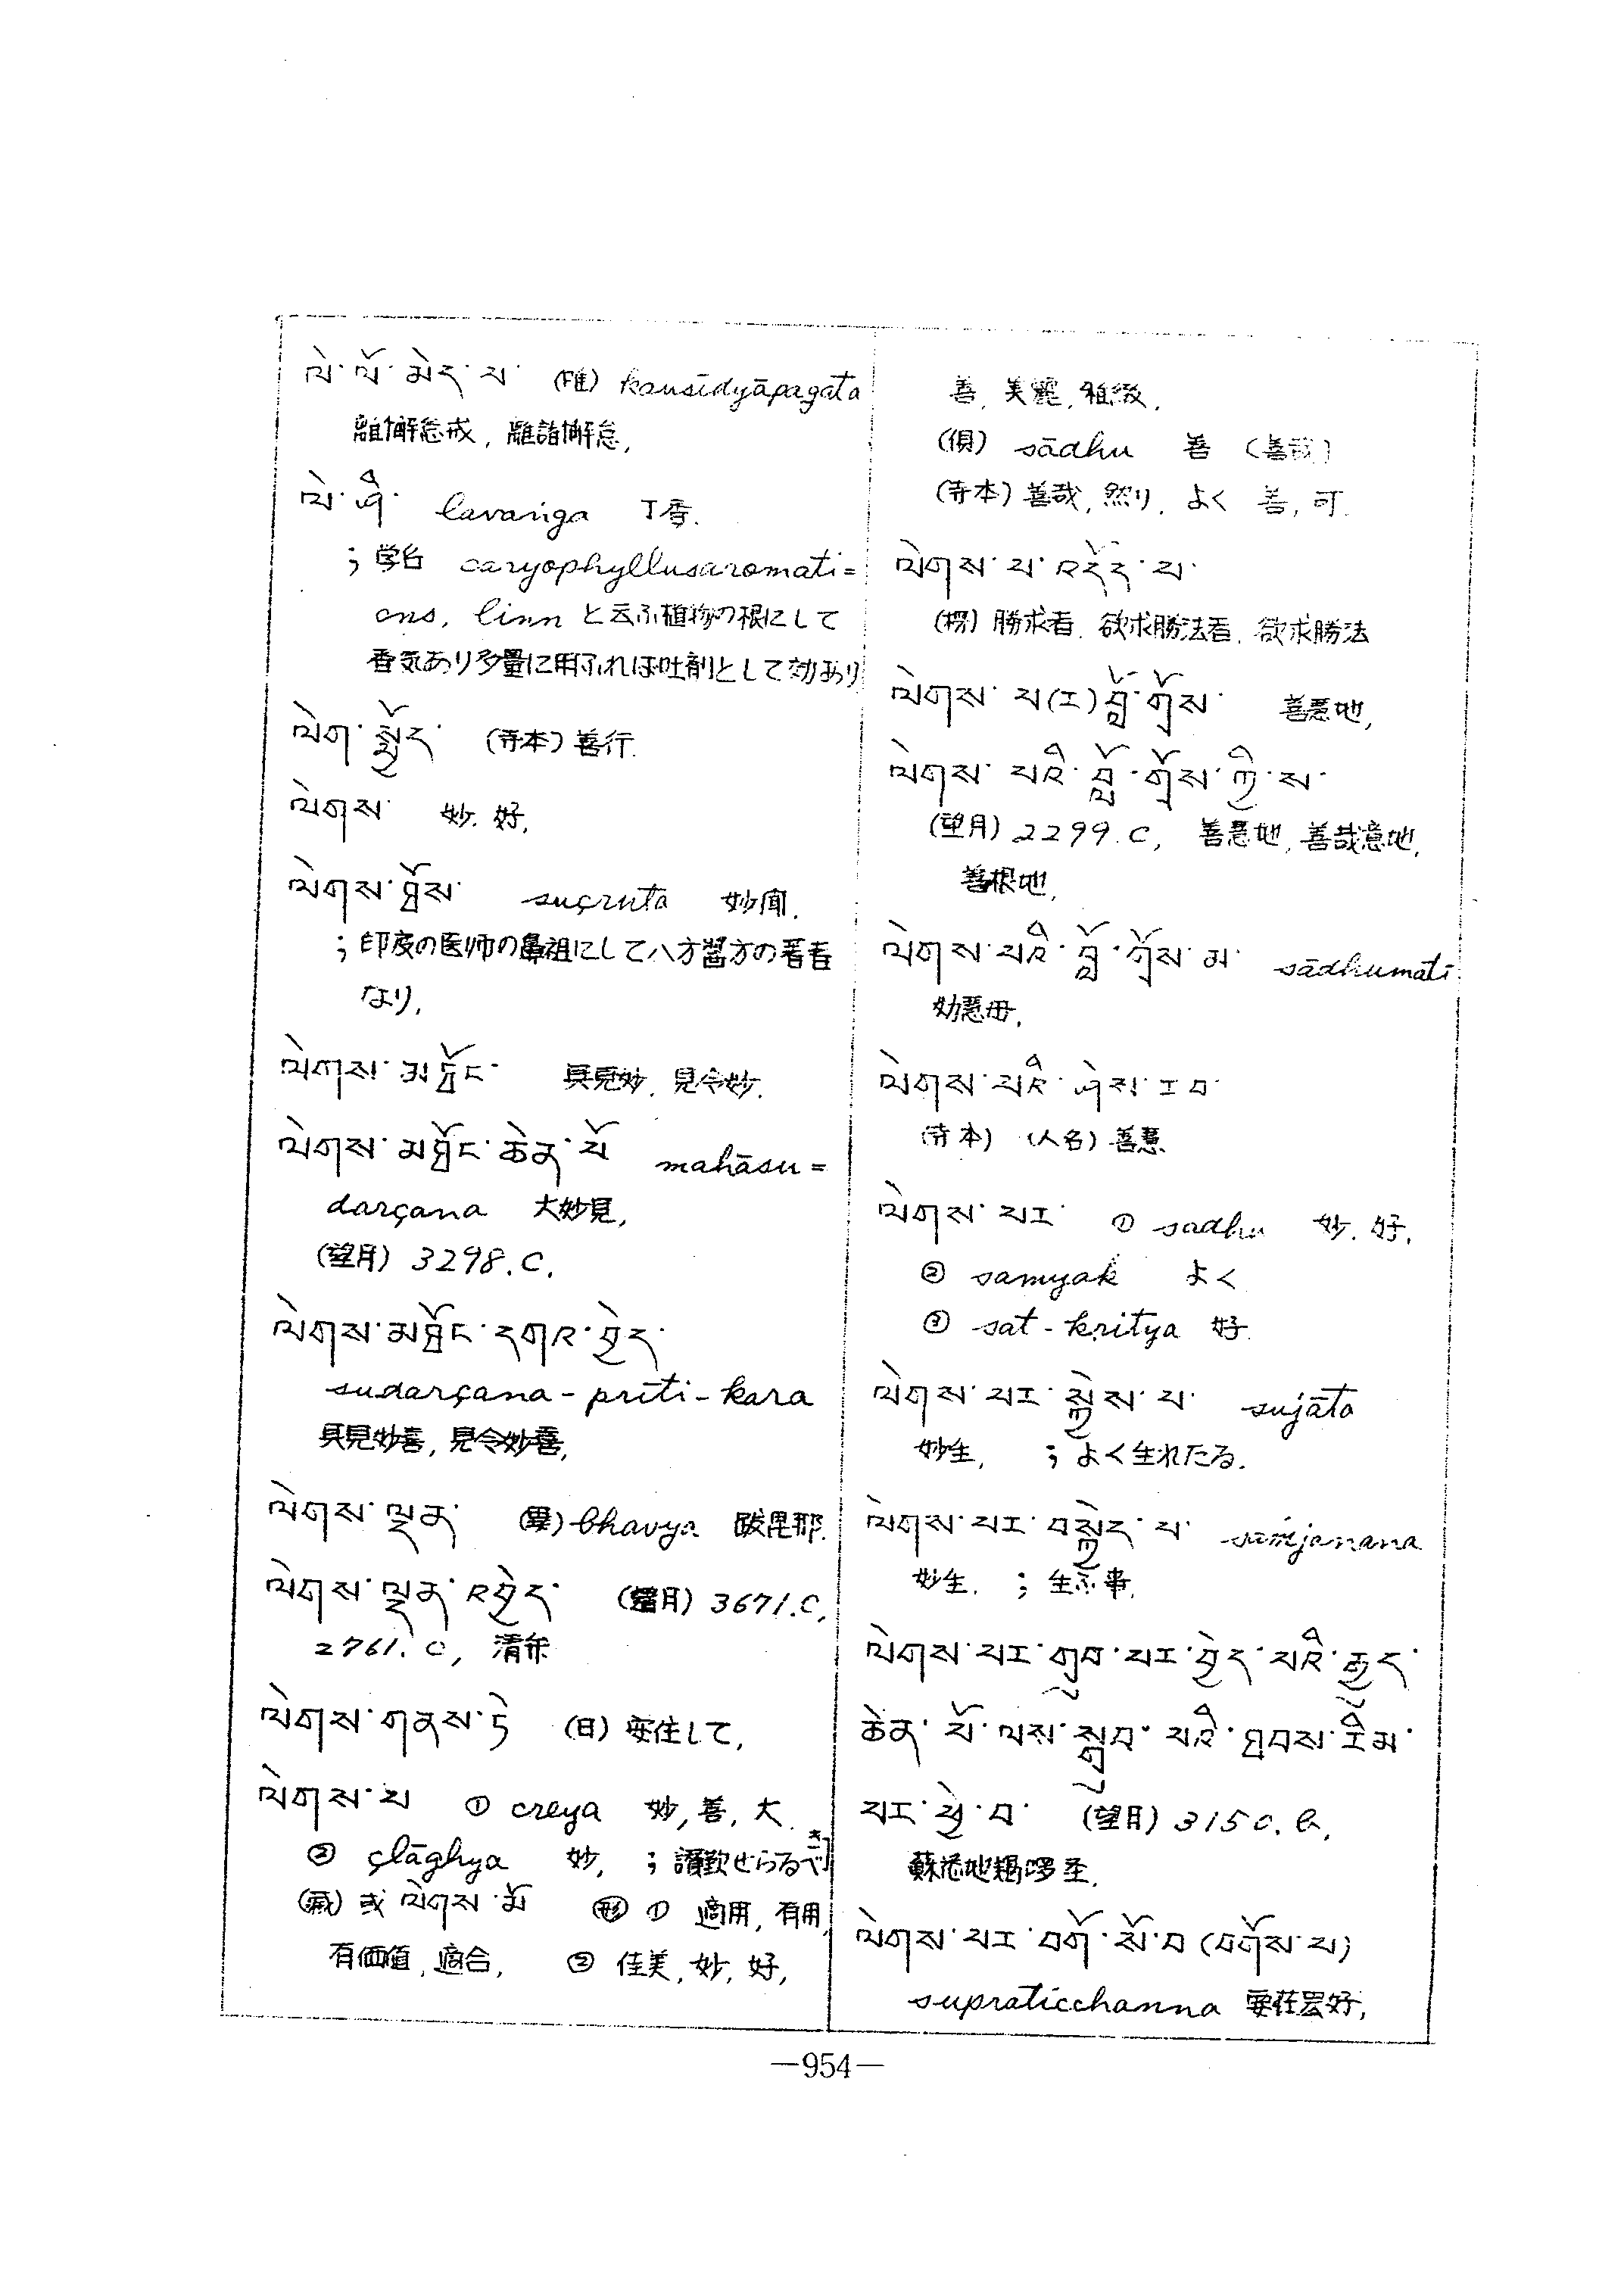 ལེ་ལོ་མེད་པ་ kausīdyāpagata
離懈怠戒, 離諸懈怠,
ལེ་ཤི་ lavaṅga 丁香.
; 学名 caryophyllusaromati=
cns, linn と云ふ植物の根にして
香気あり多量に用ふれば吐剤として効あり
ལེག་སྤྱོད་ (寺本) 善行.
ལེགས་ 妙. 好,
ལེགས་ཐོས་ suçruta 妙聞.
; 印度の医师の鼻祖にして八方醫方の著者
なり,
ལེགས་མཐོང་ 具見妙. 見令妙.
ལེགས་མཐོང་ཆེན་པོ mahāsu=
darçana 大妙見,
(望月) 3298.C.
ལེགས་མཐོང་དགའ་བྱེད་
sudarçana-prīti-kara
具見妙喜, 見令妙喜,
ལེགས་ལྡན་ bhavya 毘那.
ལེགས་ལྡན་འབྱེད་ (望月) 3671.C,
2761.C, 清弁
ལེགས་གནས་ཏེ (日) 安住して,
ལེགས་པ ① creya 妙, 善, 大.
② çlāghya 妙, ; 讃歎せらるべき
(藏) 或 ལེགས་མོ ① 適用, 有用,
有価値, 適合, ② 佳美, 妙, 好,
善, 美麗, 雅致.
(倶) sādhu 善 (善哉)
(寺本) 善哉, 然り, よく 善, 可.
ལེགས་པ་འདོད་པ་
(楞) 勝求者, 欲求勝法者, 欲求勝法
ལེགས་པ(ར)བློ་གྲོས་ 善慧地,
ལེགས་པའི་བློ་གྲོས་ཀྱི་ས་
(望月) 2299.C, 善慧地, 善哉意地,
善根地,
ལེགས་པའི་བློ་གྲོས་མ་ sādhumatī
妙慧母,
ལེགས་པའི་ཤེས་རབ་
(寺本) (人名) 善慧
ལེགས་པར་ ① sadhu 妙. 好,
② samyak よく
③ sat-kritya 好.
ལེགས་པར་སྐྱེས་པ་ sujāta
妙生, ; よく生れたる.
ལེགས་པར་བསྐྱེད་པ་ saṁjanana
妙生. ; 生ふ事.
ལེགས་པར་གྲུབ་པར་བྱེད་པའི་རྒྱུད་
ཆེན་པོ་ལས་སྒྲུབ་པའི་ཐབས་རིམ་
པར་ཕྱེ་བ་ (望月) 3150.b,
蘇悉地羯囉
ལེགས་པར་བགོ་སོ་བ (བགོས་པ)
supraticchanna
—954—